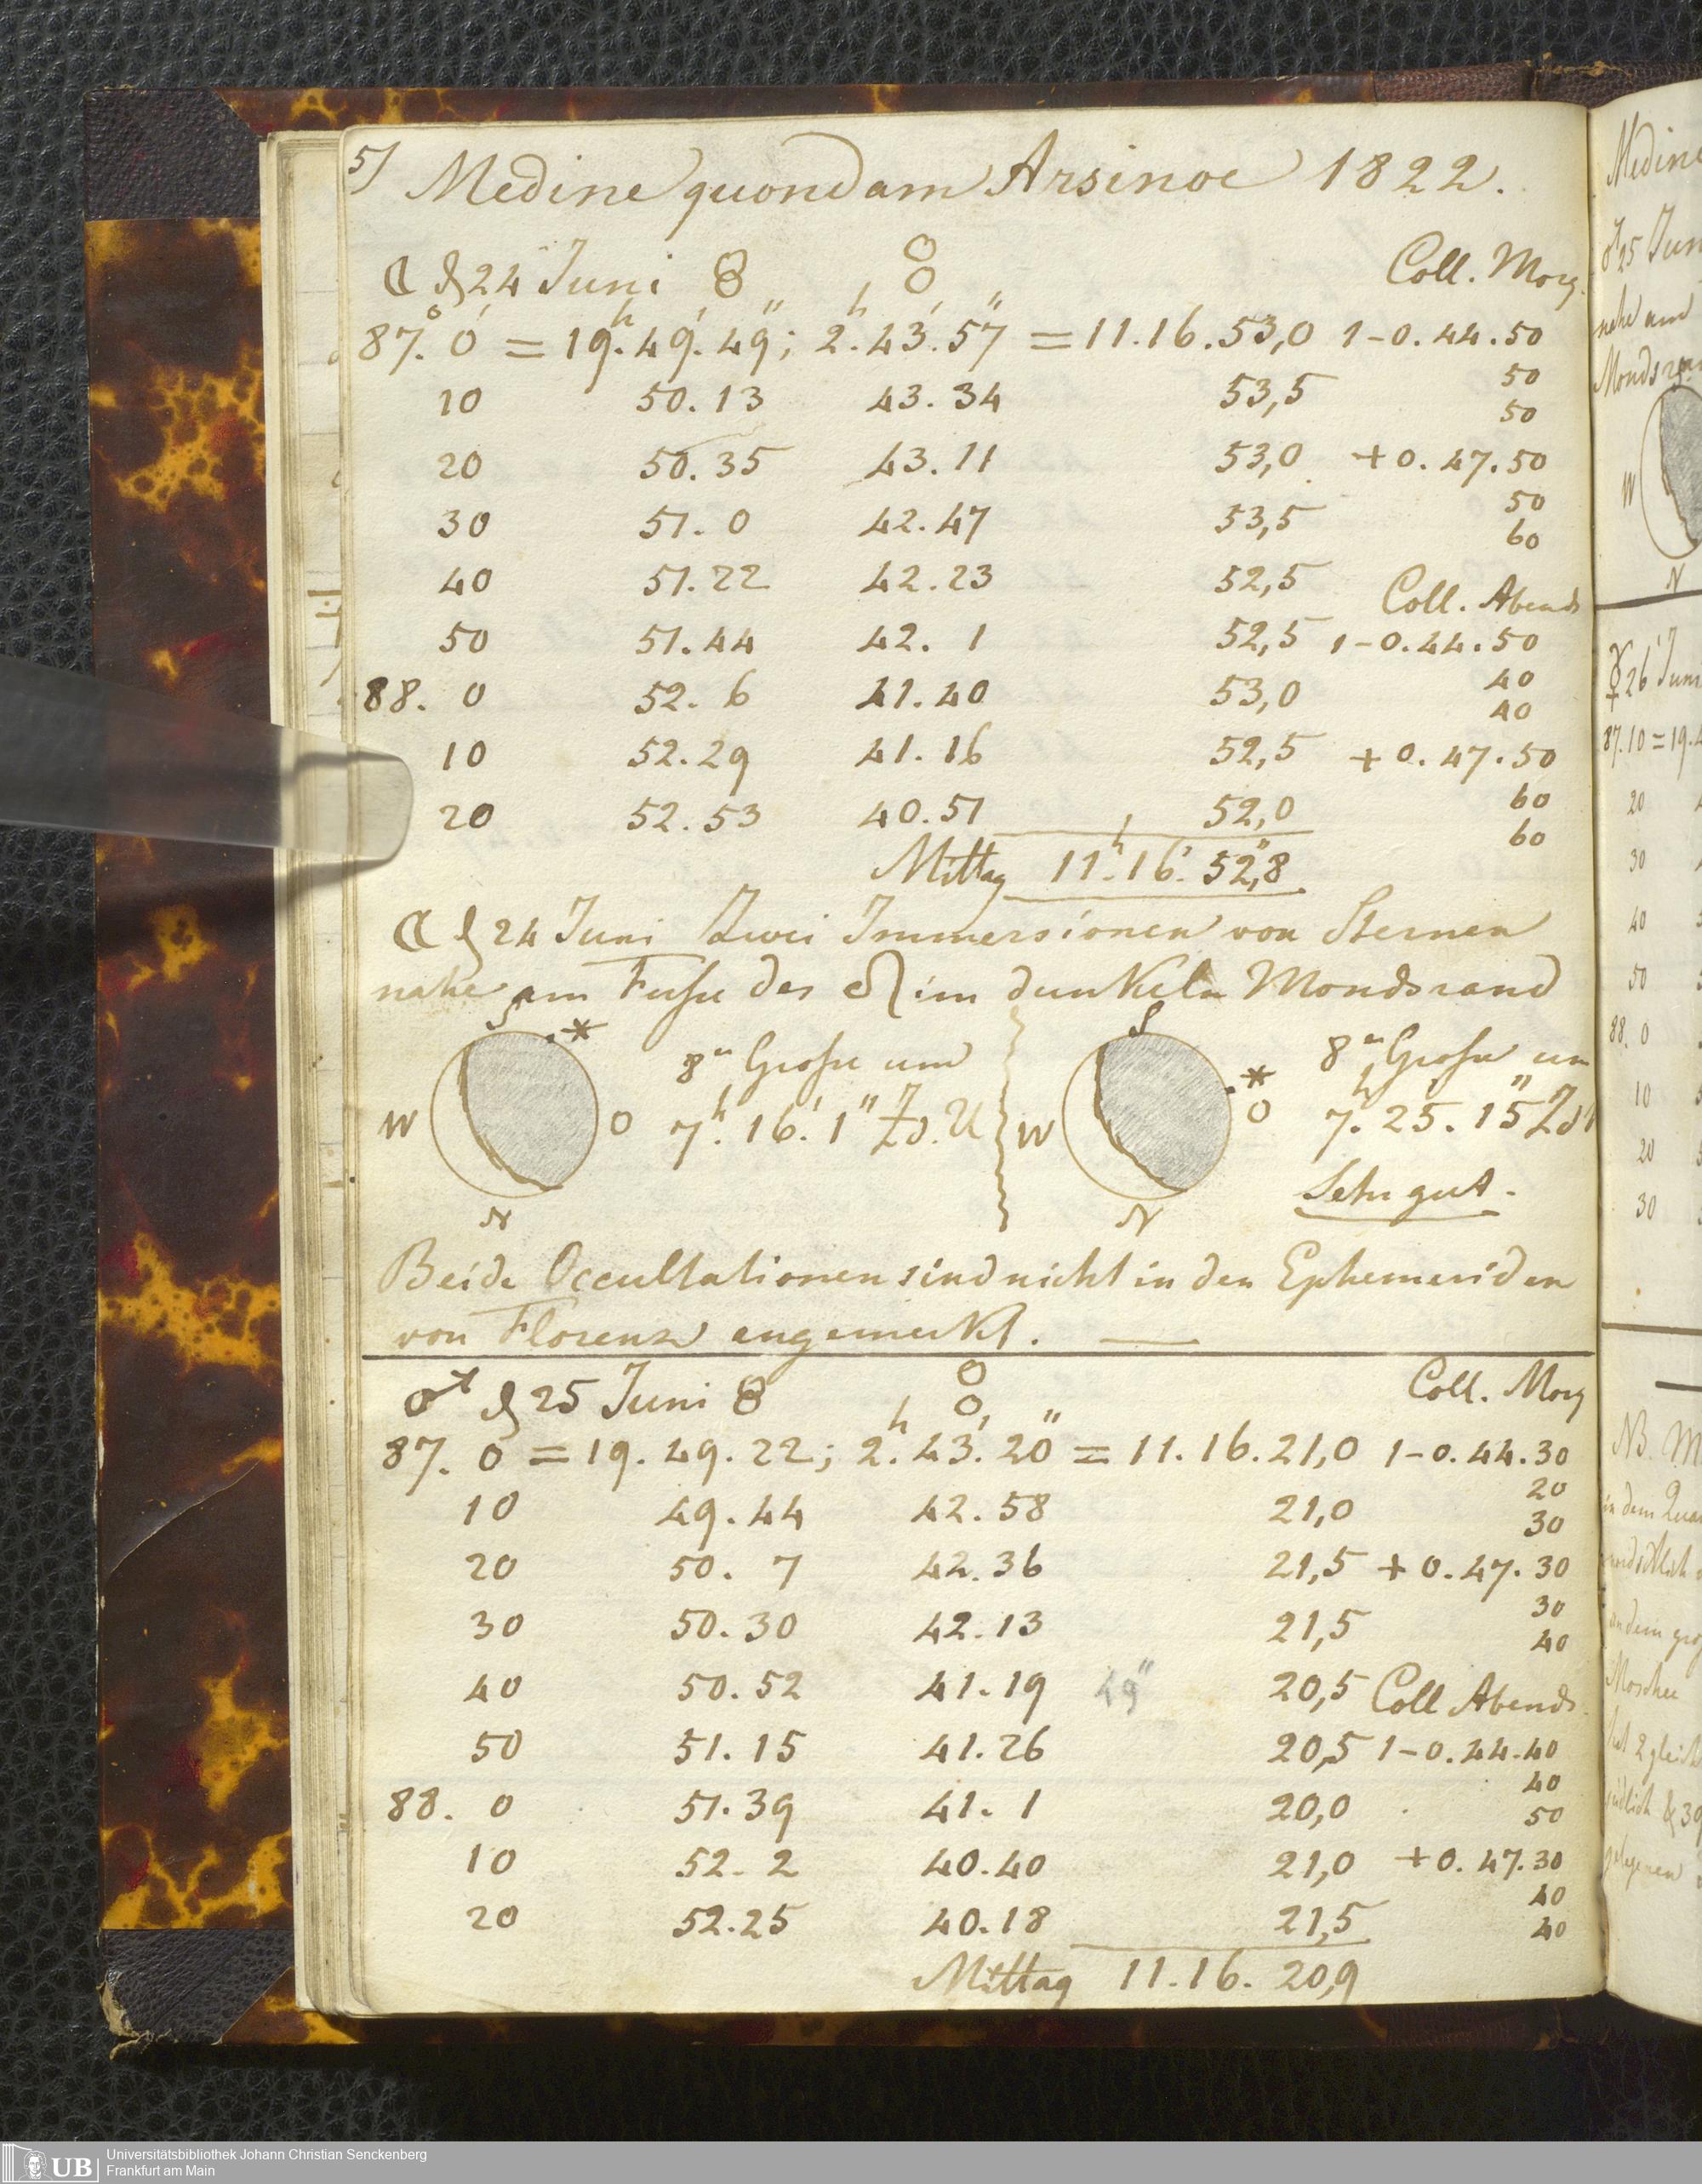 5)
Medine quondam Arsinoe 1822.
☾ d 24 Juni 8 8 Coll. Morg.
87°. 0' = 19h. 49'. 49"; 2h. 43'. 57" = 11.16.53,0 1-0.44.50
10 50.13 43.34 53,5 50
50
20 50.35 43.11 53,0 +0.47.50
30 51. 0 42.47 53,5 50
60
40 51.22 42.23 52,5 Coll. Abends
50 51.44 42. 1 52,5 1-0.44.50
88. 0 52. 6 41.40 53,0 40
40
10 52.29 41.16 52,5 +0.47.50
20 52.53 40.51 52,0 60
60
Mittag 11h.16'.52,"8
☾ d 24 Juni Zwei Immersionen von Sternen
nahe am Fuſse des ♌ im dunkeln Mondsrand
S * S *
8n Groſse um 8n Groſse um
W O 7h. 16'. 1" Zd. U W O 7h. 25. 15"
N N Sehr gut.
Beide Occultationen sind nicht in den Ephemeriden
von Florenz angemerkt.
♂ d 25 Juni 8 8 Coll. Morg
87. 0 = 19. 49. 22; 2h. 43'. 20" = 11.16.21,0 1-0.44.30
20
10 49.44 42.58 21,0 30
20 50. 7 42.36 21,5 +0.47.30
30
30 50.30 42.13 21,5 40
40 50.52 41.19 49" 20,5 Coll Abends
50 51.15 41.26 20,5 1-0.44.40
40
88. 0 51.39 41. 1 20,0 50
10 52. 2 40.40 21,0 +0.47.30
40
20 52.25 40.18 21,5 40
Mittag 11.16. 20,9
Medine
♂ 25 Juni
nahe am
W
N
♀ 26 Juni
87.10 = 19.
20
30
40
50
88. 0
10
20
30
NB.
in dem
Moschee
UB
Universitätsbibliothek Johann Christian Senckenberg
Frankfurt am Main